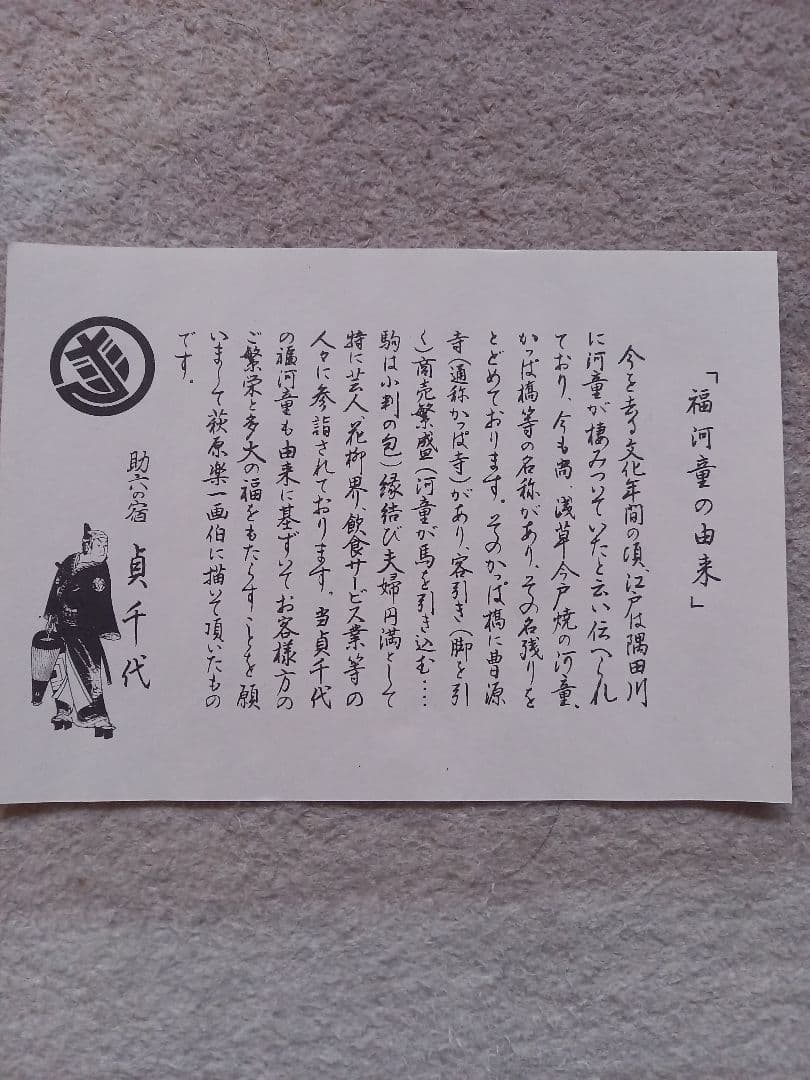 「福河童の由来」
今を去る文化年間の頃、江戸は隅田川
に河童が棲みついていたと云い伝へられ
ており、今も尚、浅草今戸焼の河童、
かっぱ橋等の名称があり、その名残りを
とどめております。そのかっぱ橋に曹源
寺(通称かっぱ寺)があり、客引き(脚を引
く)商売繁盛(河童が馬を引き込む・・・・
駒は小判の包)縁結び夫婦円満として
特に芸人、花柳界、飲食サービス業等の
人々に参詣されております。当貞千代
の福河童も由来に基ずいてお客様方の
ご繁栄と多大の福をもたらすことを願
いまして萩原楽一画伯に描いて頂いたもの
です。
助六の宿 貞千代